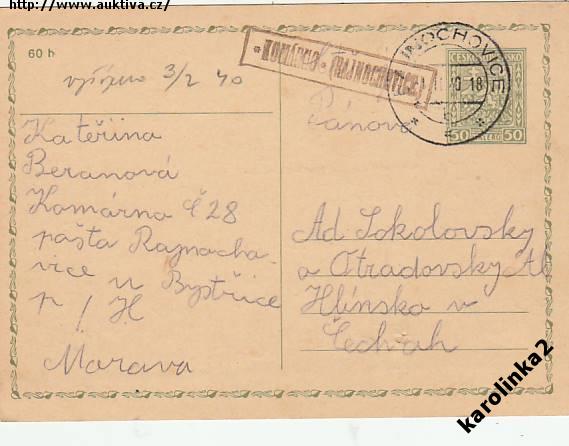 http://www.auktiva.cz/
60 h
vyřízeno 3/2 40
KOMÁRNO (RAJNOCHOVICE)
RAJNOCHOVICE
40 18
ČESKOSLOVENSKO
50 50
Pánové
Kateřina
Beranová
Komárno Č 28
pošta Rajnocho
vice u Bystřice
p / H
Morava
Ad Sokolovsky
a Otradovsky
Hlinsko v
Čechah
karolinka2